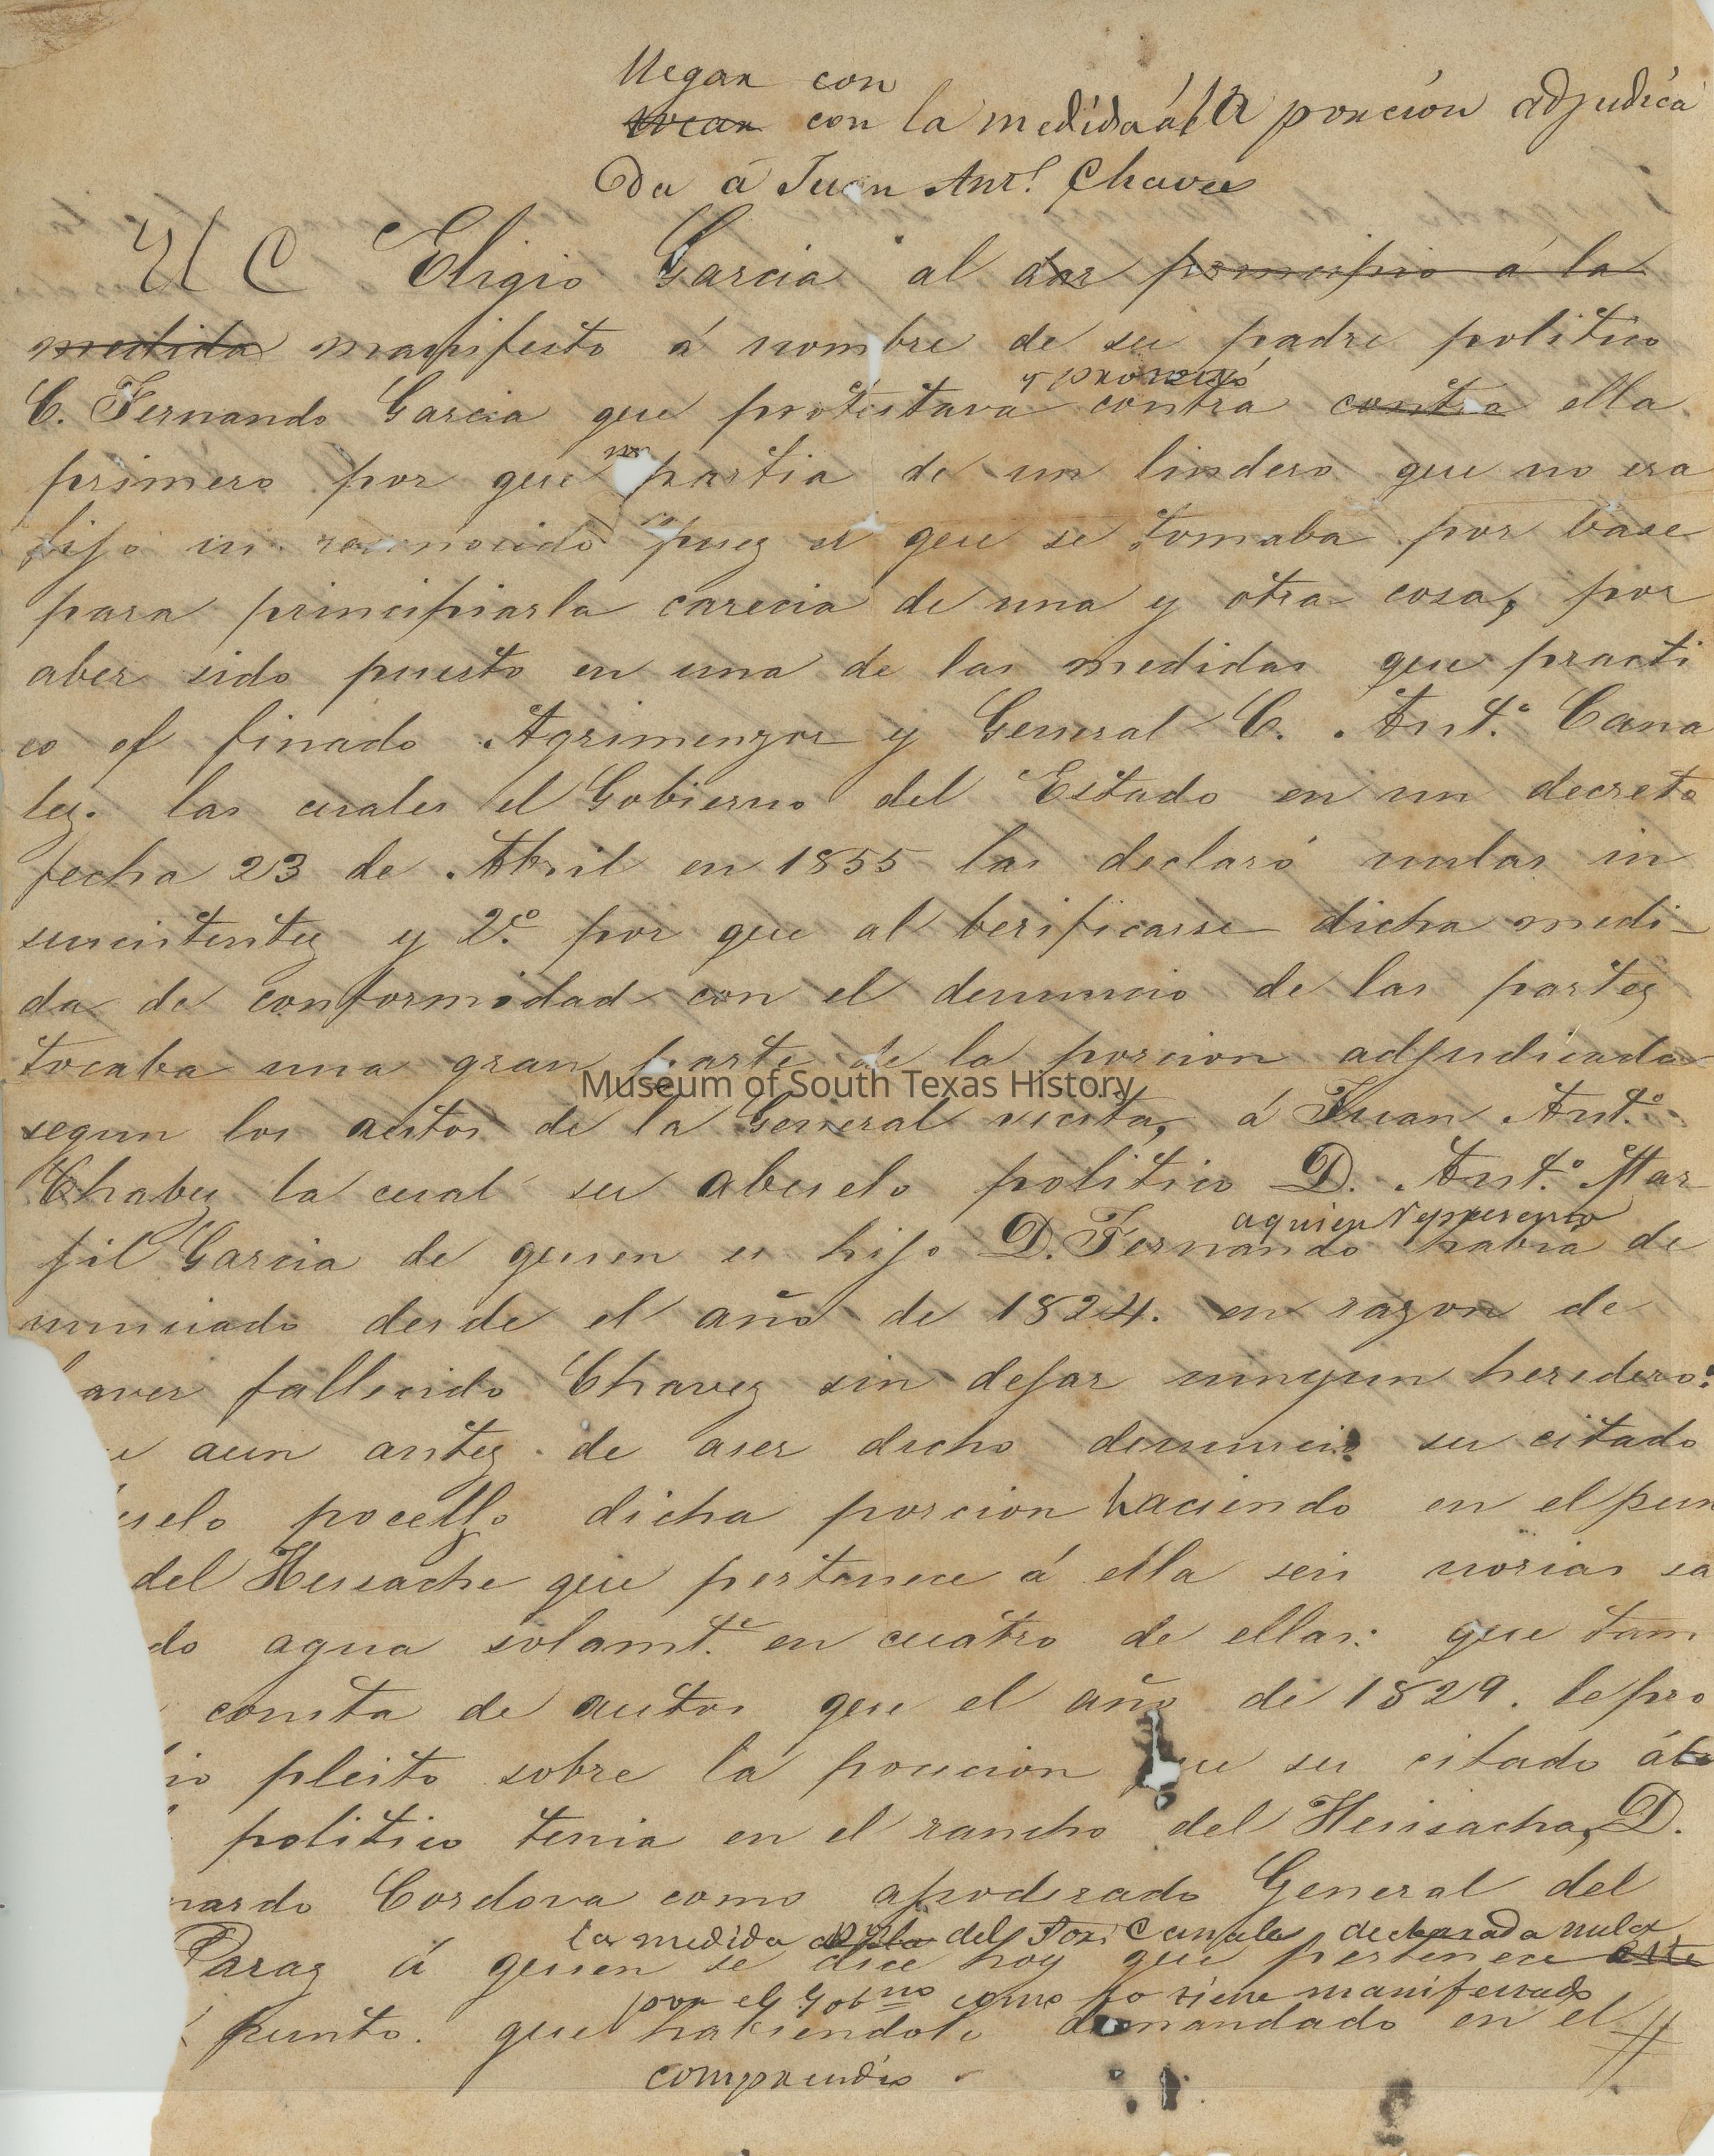 llegar con
tocar con la medida á la porción adjudica
da á Juan Ant.º Chaves
El C Eligio Garcia al dar principio á la
medida manifesto á nombre de su padre politico
y
C. Fernando Garcia que protestava contra contra ella
primero por que partia de un lindero que no era
fijo ni reconocido puez el que se tomaba por base
para principiarla carecia de una y otra cosa, por
aber sido puesto en una de las medidas que practi
co el finado Agrimenzor y General C. Ant.º Cana
lez. las cuales el Gobierno del Estado en un decreto
fecha 23 de Abril en 1855 las declaró nulas in
sucistentez y 2.º por que al berificarse dicha medi-
da de conformidad con el denuncio de las partez
tocaba una gran parte de la porcion adjudicada
segun los autos de la General vicita, á Juan Ant.º
Chabez la cual su abuelo politico D. Ant.º Mar
aquien represento
fil Garcia de quien es hijo D. Fernando habia de
nunciado desde el año de 1824. en razon de
aver fallecido Chavez sin dejar ningun heredero:
e aun antez de aser dicho denuncio su citado
uelo pocello dicha porcion haciendo en el pun
del Heusache que pertenece á ella seis norias sa
do agua solamt.e en cuatro de ellas: que tam
consta de autos que el año de 1829. le pro
io pleito sobre la pocecion que su citado abu
politico tenia en el rancho del Heusacha, D.
nardo Cordova como apoderado General del
la medida del Canales declarada nula
Paraz á quien se dice hoy que pertenece este
por el Gobno como lo tiene manifestado
punto. que habiendolo demandado en el #
comprendio
Museum of South Texas History